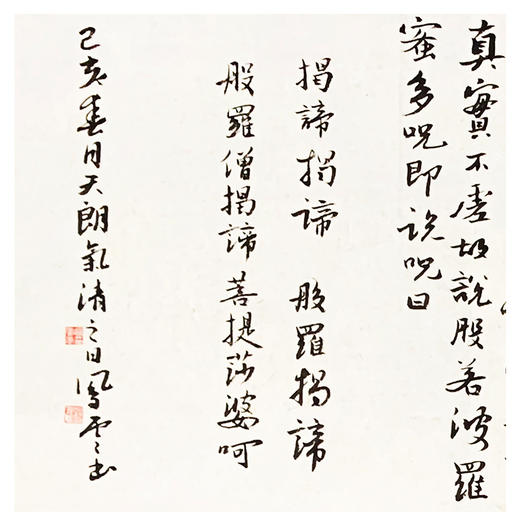 真實不虛故說般若波羅
蜜多呪即說呪曰
揭諦揭諦 般羅揭諦
般羅僧揭諦菩提莎婆呵
己亥春月天朗氣清之日鳳雲書